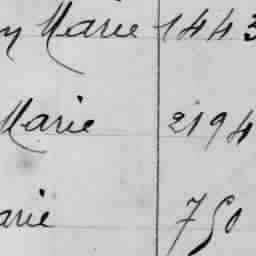 Marie 1443
Marie 2194
arie 750